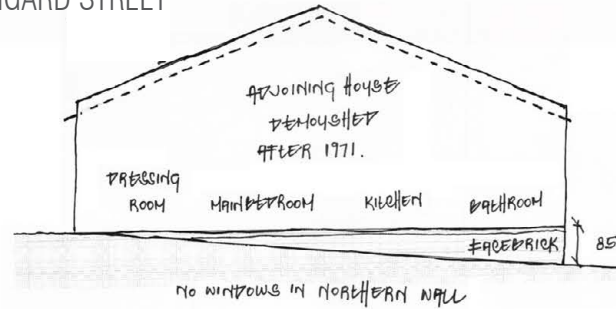 STREET
ADJOINING HOUSE
DEMOLISHED
AFTER 1971.
DRESSING
ROOM
MAIN BEDROOM
KITCHEN
BATHROOM
FACEBRICK
85
NO WINDOWS IN NORTHERN WALL